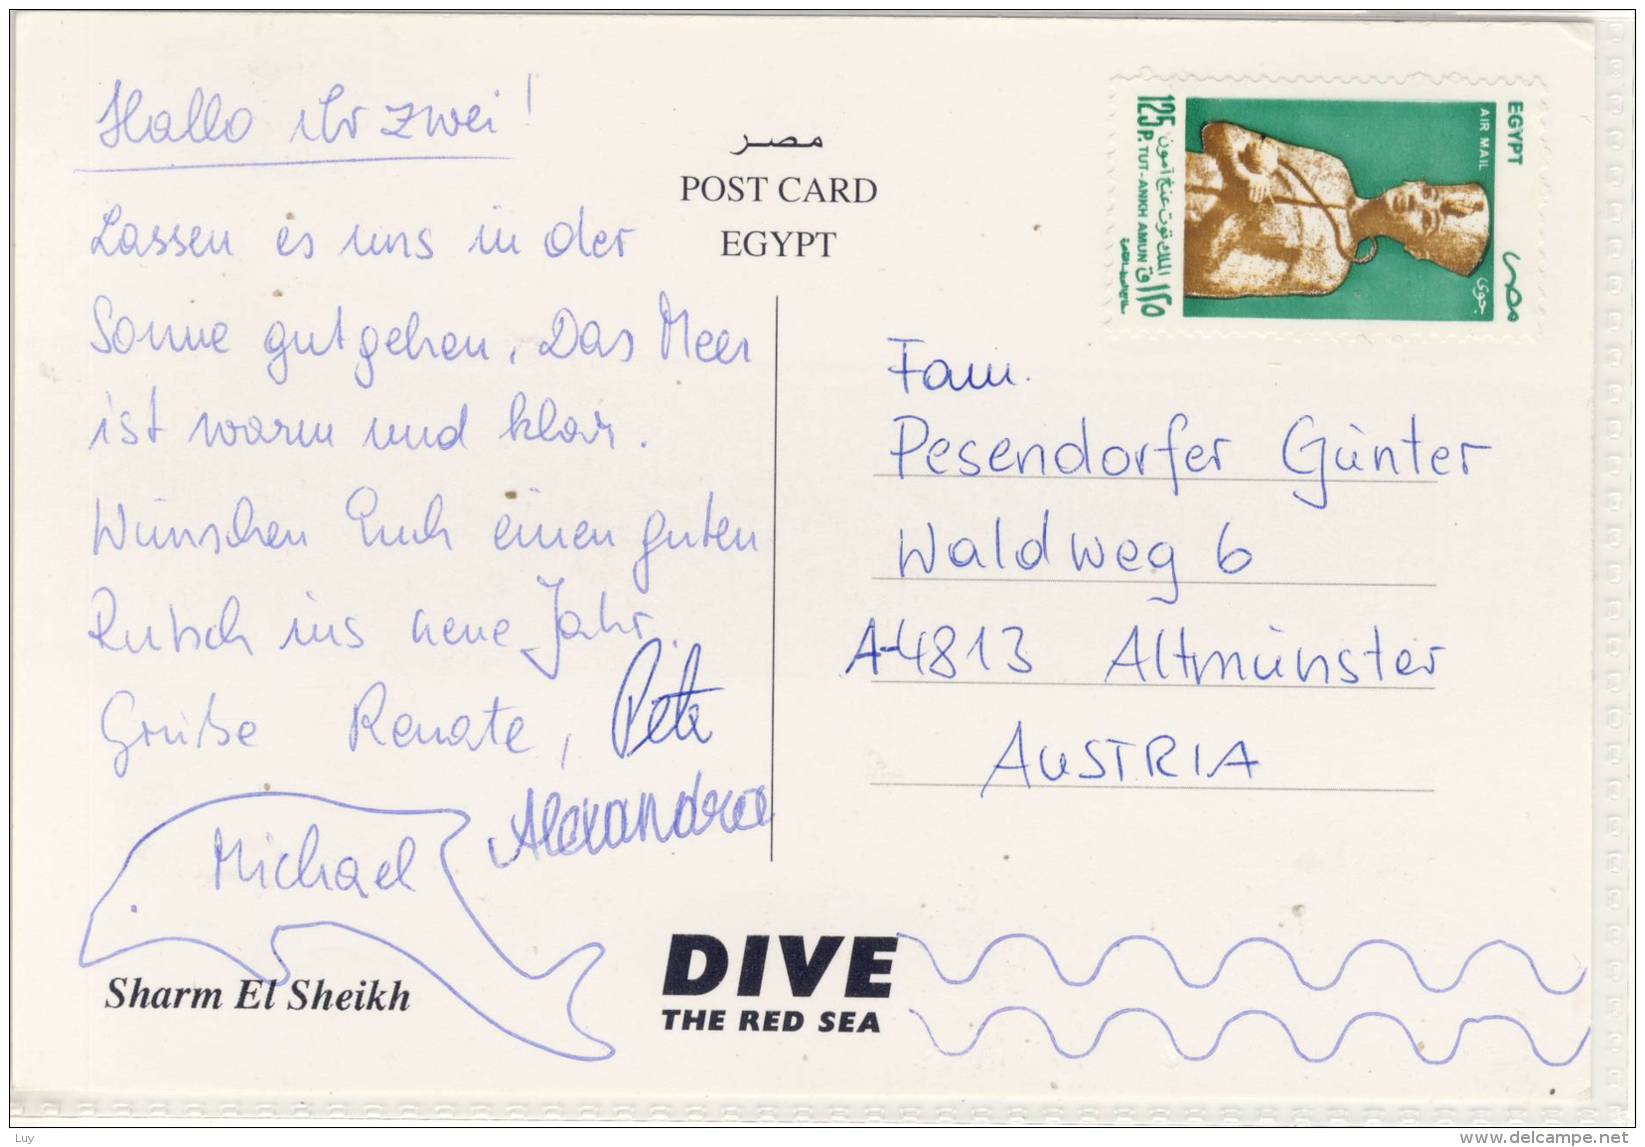 Hallo ihr zwei!
Lassen es uns in der
Sonne gutgehen. Das Meer
ist warm und klar.
Wünschen Euch einen guten
Rutsch ins neue Jahr.
Grüße Renate, Peter
Alexandra
Michael
Sharm El Sheikh
مصر
POST CARD
EGYPT
EGYPT
AIR MAIL
مصر
جوى
125 P. TUT-ANKH AMUN
الملك توت عنخ آمون ١٢٥ ق
Fam.
Pesendorfer Günter
Waldweg 6
A-4813 Altmünster
AUSTRIA
DIVE
THE RED SEA
Luy
delcampe.net